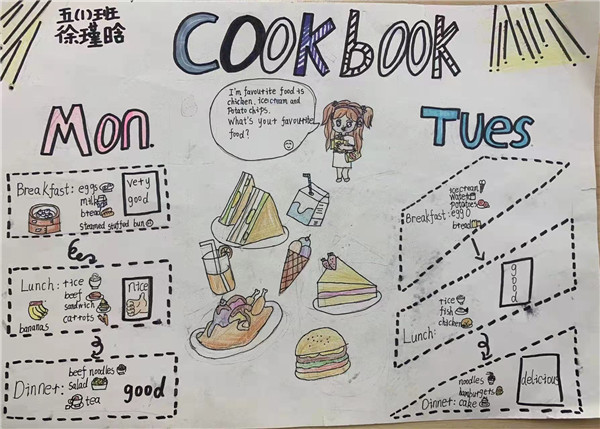 五(1)班
徐瑾晗
COOKbOOK
I'm favourite food is
chicken, icecream and
potato chips.
What's your favourite
food?
Mon.
Breakfast: eggs
milk
bread
steamed stuffed bun
very
good
Lunch: rice
beef
sandwich
carrots
bananas
nice
Dinner: beef noodles
salad
tea
good
Tues
Breakfast: icecream
water
potatoes
egg
bread
good
Lunch: rice
fish
chicken
Dinner: noodles
hamburgers
cake
delicious